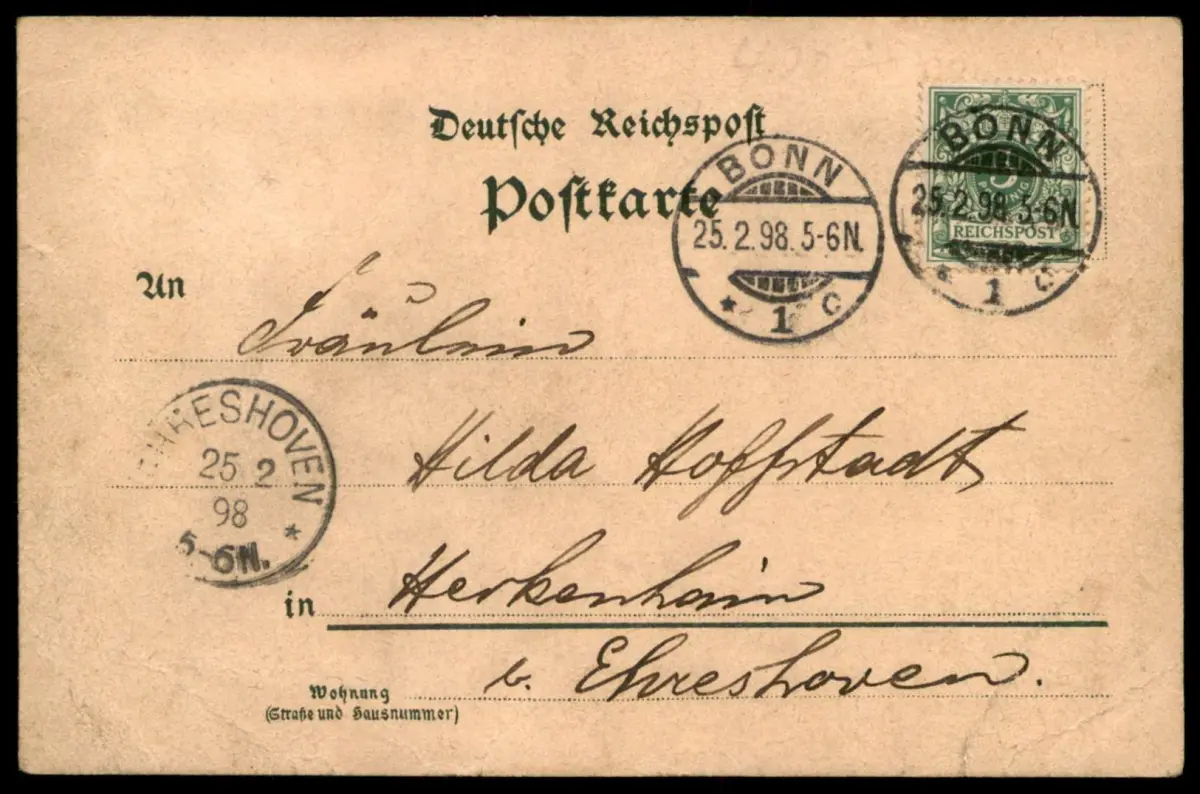 Deutsche Reichspost
Postkarte
BONN
25.2.98.5-6N.
* 1 c
BONN
25.2.98.5-6N.
* 1 c
5
REICHSPOST
An
Fräulein
EHRESHOVEN
25 2
98
5-6N. *
Hilda Hoffstadt
in Herkenhain
b. Ehreshoven.
Wohnung
(Straße und Hausnummer)